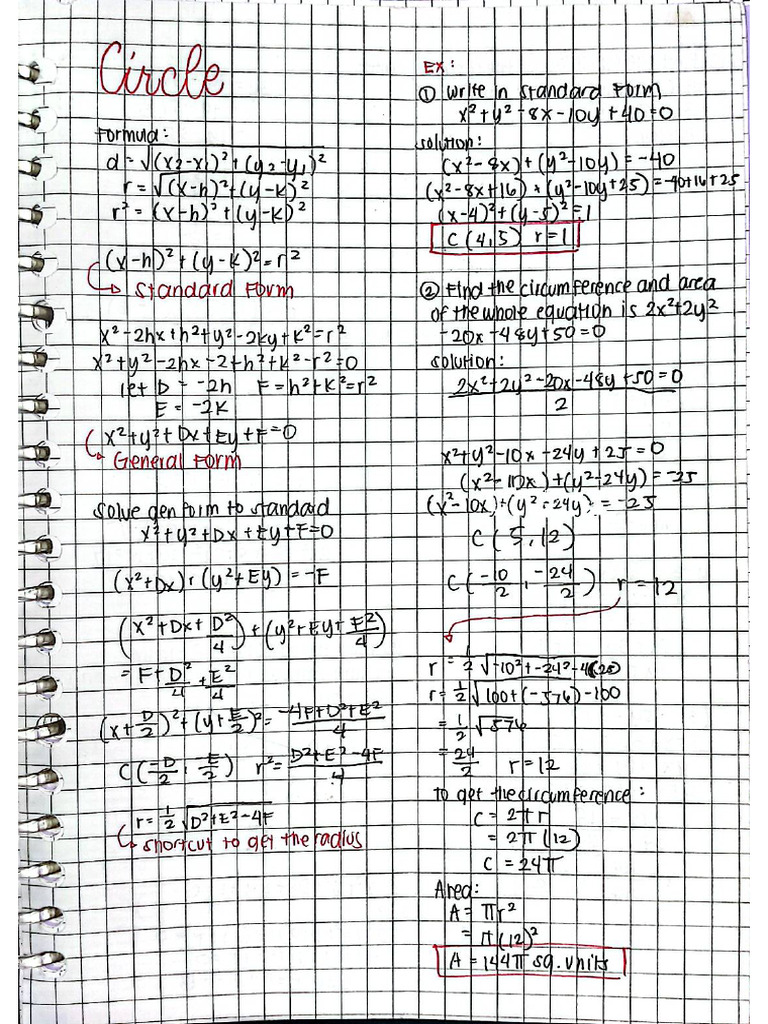 Circle
Formula:
d = √(x₂-x₁)² + (y₂-y₁)²
r = √(x-h)² + (y-k)²
r² = (x-h)² + (y-k)²
(x-h)² + (y-k)² = r²
Standard Form
x² - 2hx + h² + y² - 2ky + k² = r²
x² + y² - 2hx - 2 + h² + k² - r² = 0
let D = -2h F = h² + k² = r²
E = -2k
x² + y² + Dx + Ey + F = 0
General Form
Solve gen form to standard
x² + y² + Dx + Ey + F = 0
(x² + Dx) + (y² + Ey) = -F
(x² + Dx + D²/4) + (y² + Ey + E²/4)
= F + D²/4 + E²/4
(x + D/2)² + (y + E/2)² = -4F + D² + E²/4
C(-D/2, -E/2) r² = D² + E² - 4F/4
r = 1/2 √D² + E² - 4F
shortcut to get the radius
EX:
① Write in standard form
x² + y² - 8x - 10y + 40 = 0
solution:
(x² - 8x) + (y² - 10y) = -40
(x² - 8x + 16) + (y² - 10y + 25) = -40 + 16 + 25
(x-4)² + (y-5)² = 1
C (4,5) r = 1
② Find the circumference and area
of the whole equation is 2x² + 2y²
- 20x - 48y + 50 = 0
solution:
2x² + 2y² - 20x - 48y + 50 = 0
2
x² + y² - 10x - 24y + 25 = 0
(x² - 10x) + (y² - 24y) = -25
(x² - 10x) + (y² - 24y) = -25
C (5, 12)
C (-10/2, -24/2) r = 12
r = 1/2 √-10² + -24² - 4(25)
r = 1/2 √100 + (-576) - 100
= 1/2 √576
= 24/2 r = 12
To get the circumference:
C = 2πr
= 2π(12)
C = 24π
Area:
A = πr²
= π(12)²
A = 144π sq. units